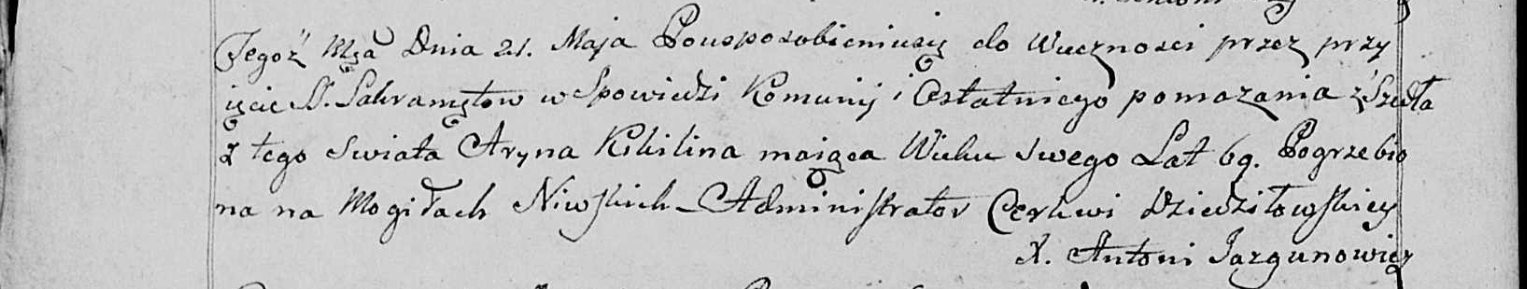 Tegoż Mca Dnia 21. Maja Pousposobieniusię do Wieczności przez przy
ięcie S. Sakramętow w Spowiedzi Komunij i Ostatniego pomazania zszedła
z tego Swiata Aryna Kikilina maiąca Wieku Swego Lat 69. Pogrzebio
na na Mogiłach Niwskich _ Administrator Cerkwi Dziedziłowskiey
X. Antoni Jazgunowicz